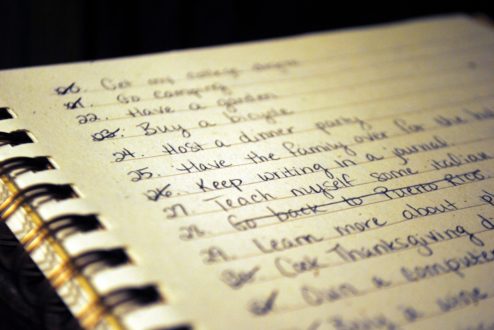 20. Get my college degree
21. Go camping
22. Have a garden
23. Buy a bicycle
24. Host a dinner party
25. Have the family over for the
26. Keep writing in a journal
27. Teach myself some Italian
28. Go back to Puerto Rico
29. Learn more about
Cook Thanksgiving
Own a computer
Buy a